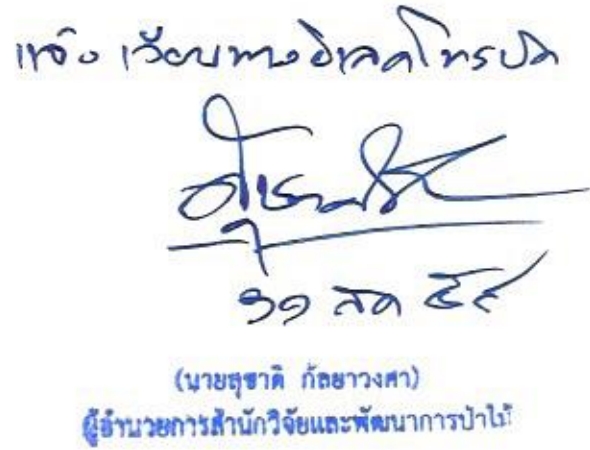 แจ้งเวียนทางอิเลคโทรนิค
๓๑ สค ๕๕
(นายสุชาติ กัลยาวงศา)
ผู้อำนวยการสำนักวิจัยและพัฒนาการป่าไม้